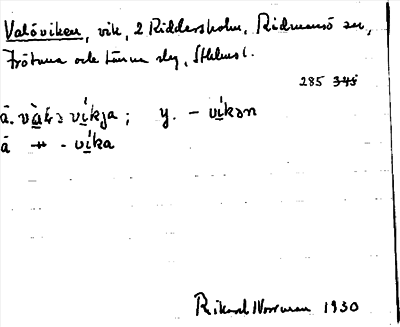 Valöviken, vik, 2 Riddersholm, Rådmansö sn,
Frötuna och Länna slg, Sthlms l.
285 345
å. và̀ḷɜ víkja; y. – víkən
ä ↠ - víka
Rikard Norrman 1930